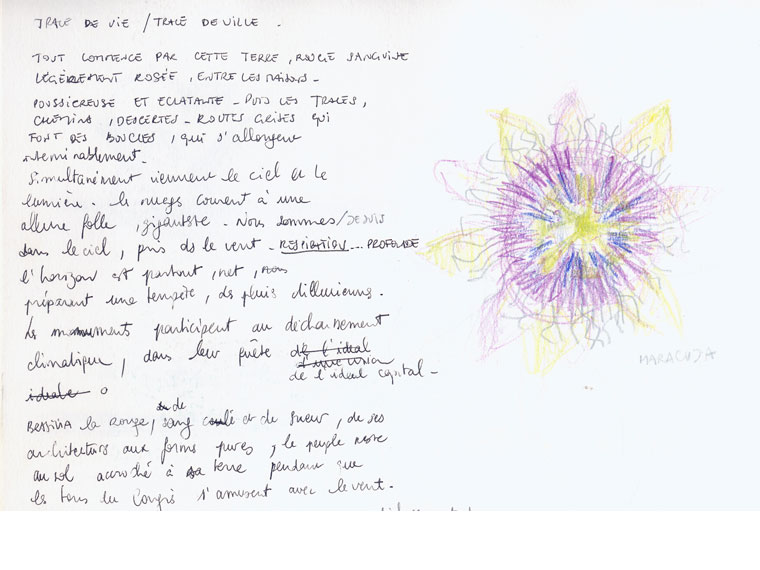 TRACÉ DE VIE / TRACÉ DE VILLE.
TOUT COMMENCE PAR CETTE TERRE, ROUGE SANGUINE
LÉGÈREMENT ROSÉE, ENTRE LES MAISONS -
POUSSIEREUSE ET ECLATANTE - PUIS LES TRACÉS,
CHEMINS, DESERTES - ROUTES GRISES QUI
FONT DES BOUCLES, qui s'allongent
interminablement -
Simultanément viennent le ciel et la
lumière. les nuages courent à une
allure folle, gigantste - Nous sommes/DESSUS
dans le ciel, puis ds le vent - RESPIRATION... PROFONDE
l'horizon est partout, net,
préparent une tempête, des pluies dilluviennes.
Les monuments participent au déchainement
climatique, dans leur quête de l'ideal
d'une vision
de l'ideal capital -
ideale
de
BRSSILIA la rouge, sang et de sueur, de ses
architectures aux formes pures, le peuple reste
au sol accroché à sa terre pendant que
les tours du Congrès s'amusent avec le vent.
MARACUDA